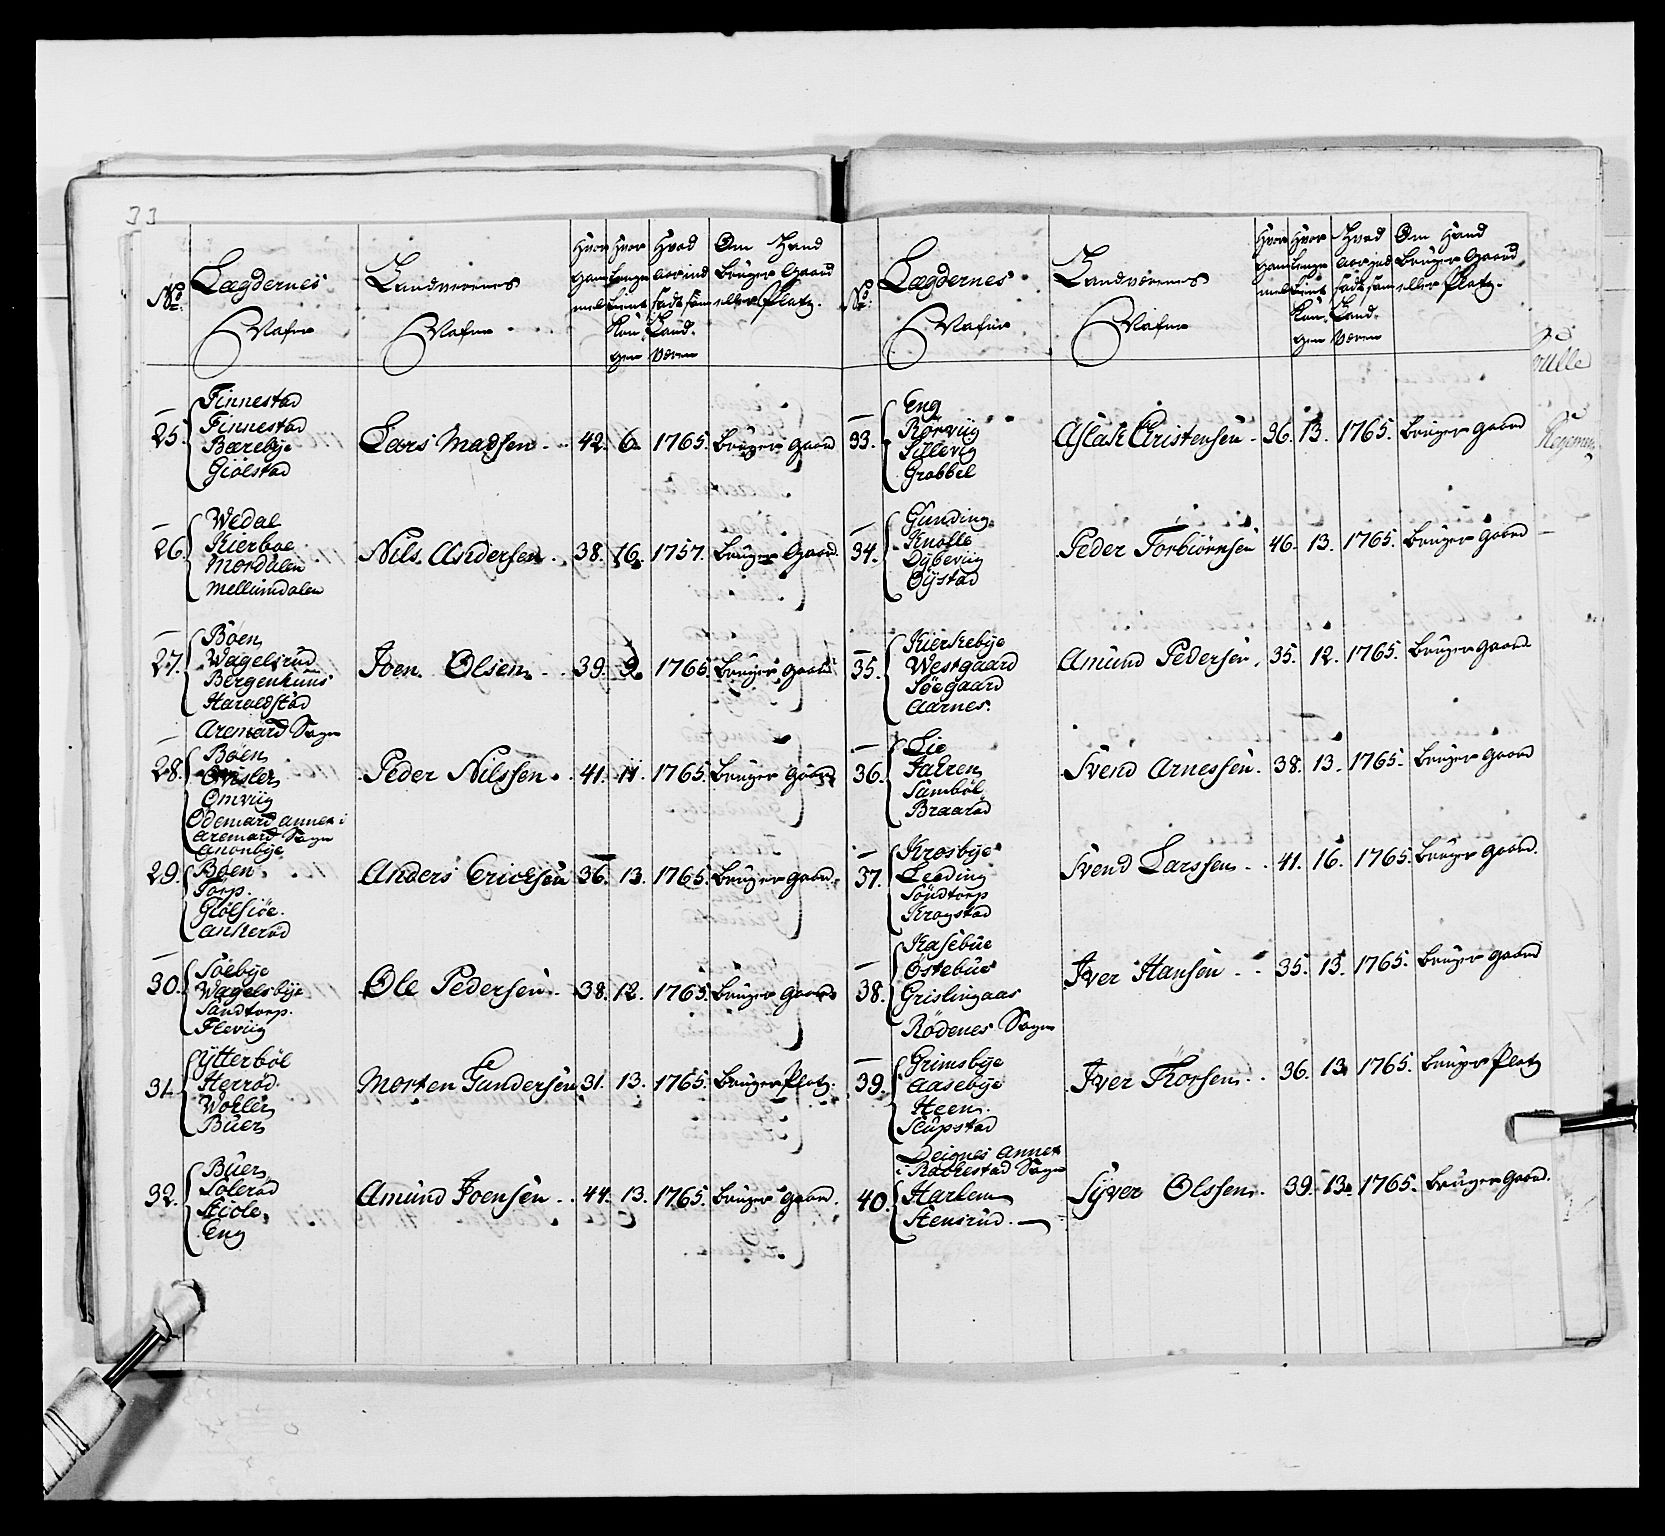 33
No Lægdernes Nafne
Landværnes Nafne
Hvor gammel
Hvor længe tient Kongen
Hvad Aar ind sadt som Land Væren
Om Hand bruger Gaard eller Platz.
25. Finnestad
Finnestad
Bærebye
Giølstad
Lars Madsen 42. 6. 1765. bruger gaard
26. Wedal
Kierboe
Mordalen
Mellumdalen
Nils Andersen 38. 16. 1757. bruger Gaard.
27. Boen
Wagelsrud
Bergenhuus
Haraldstad
Joen Olsen 39. 9. 1765. bruger gaard
Aremard Sogn
28. Boen
Øvisler
Omviig
Peder Nilssen 41. 11. 1765. bruger gaard
Ødemard annex i
Aremard Sogn
Anonbye
29. Boen
Torp.
Gløsiøe.
Ankerød
Anders Ericksen 36. 13. 1765. bruger gaard
30. Søebye
Wagelsbye
Sandtorp.
Fleviig
Ole Pedersen 38. 12. 1765. bruger gaard
31. Ytterbøl
Herrød
Wohler
Buer
Morten Gundersen 31. 13. 1765. bruger Platz.
32. Buer
Solerød
Skiole
Eng
Amund Joensen 44. 13. 1765. bruger gaard.
No Lægdernes Nafne
Landværnes Nafne
Hvor gammel
Hvor længe tient Kongen
Hvad Aar ind sadt som Land Væren
Om Hand bruger Gaard eller Platz.
33. Eng
Rørviig
Sillevig
Grabbel
Aslak Christensen 36. 13. 1765. bruger gaard
34. Gunding
Knolle
Dybeviig
Øystad
Peder Torbiørnsen 46. 13. 1765. bruger gaard
35. Kierkebye
Westgaard
Søegaard
Aarnes.
Amund Pedersen 35. 12. 1765. bruger gaard
36. Lie
Jaeren
Sambøl
Braarød
Svend Arnessen 38. 13. 1765. bruger gaard
37. Krosbye
Leeding
Søndtorp
Kragstad
Svend Larssen 41. 16. 1765. bruger gaard.
38. Kasebue
Østebue
Grislingaas
Iver Hansen 35. 15. 1765. bruger gaard
Rødenes Sogn
39. Grimsbye
Aasebye
Heen.
Slupstad
Iver Thorsen 36. 13. 1765. bruger Platz
Deignes Annex
i Rackestad Sogn
40. Harlem
Stensrud.
Syver Olssen 39. 13. 1765. bruger gaard.
rulle